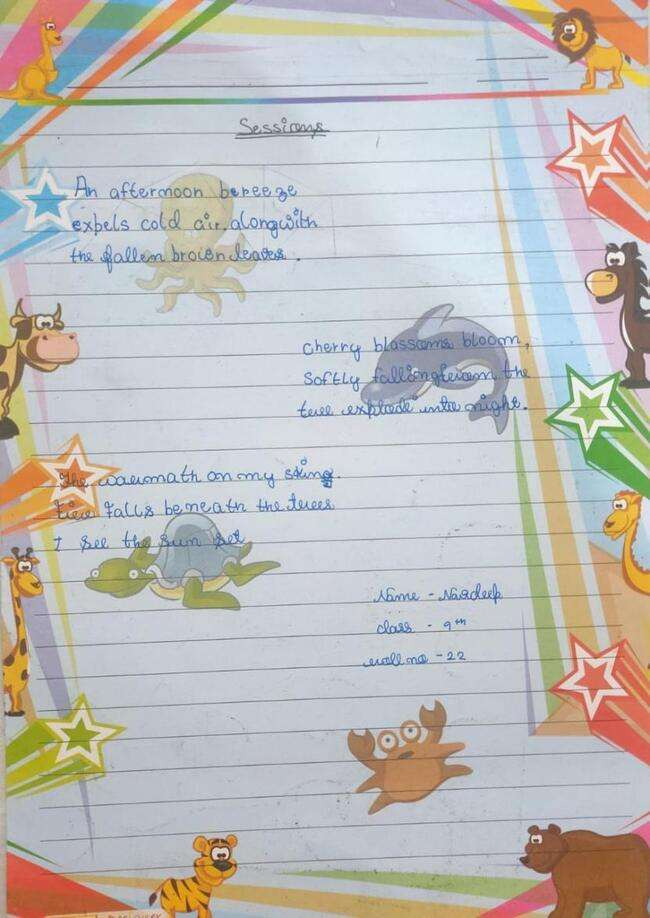 Sessions
An afternoon bereeze
expels cold air alongwith
the fallen brown leaves.
Cherry blossoms bloom,
Softly falling from the
tree explode into night.
The warmath on my sking.
Fire falls beneath the trees
I see the sun set
Name - Navdeep
class - 9th
roll no - 22